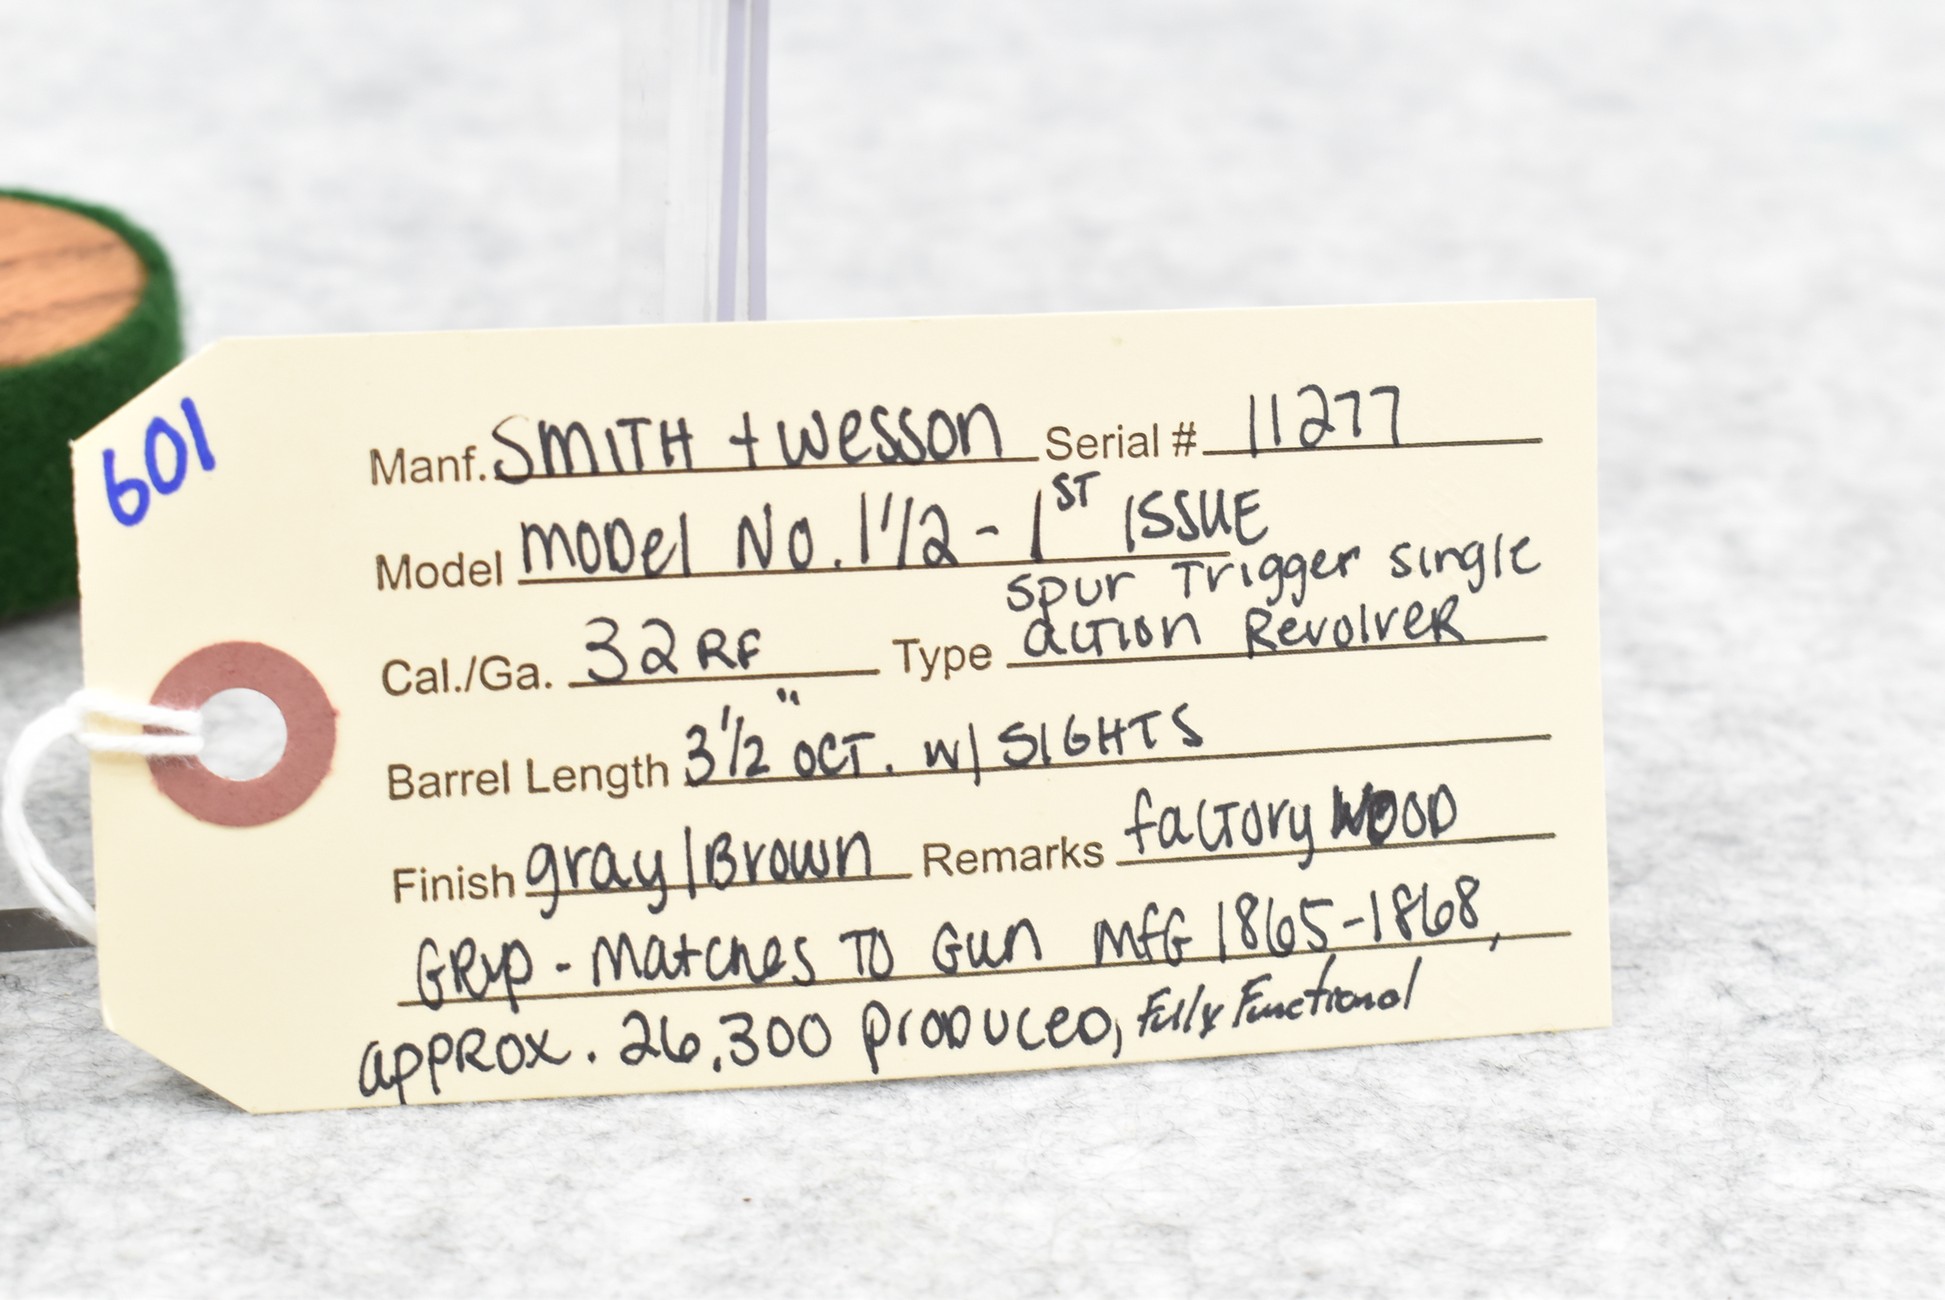 601
Manf. SMITH + Wesson Serial # 11277
Model Model No. 1 1/2 - 1ST ISSUE
Cal./Ga. 32 RF Type Spur Trigger single
action Revolver
Barrel Length 3 1/2" OCT. w/ SIGHTS
Finish gray/Brown Remarks factory WOOD
GRip - Matches TO Gun MFG 1865-1868,
approx. 26,300 produced, Fully Functional